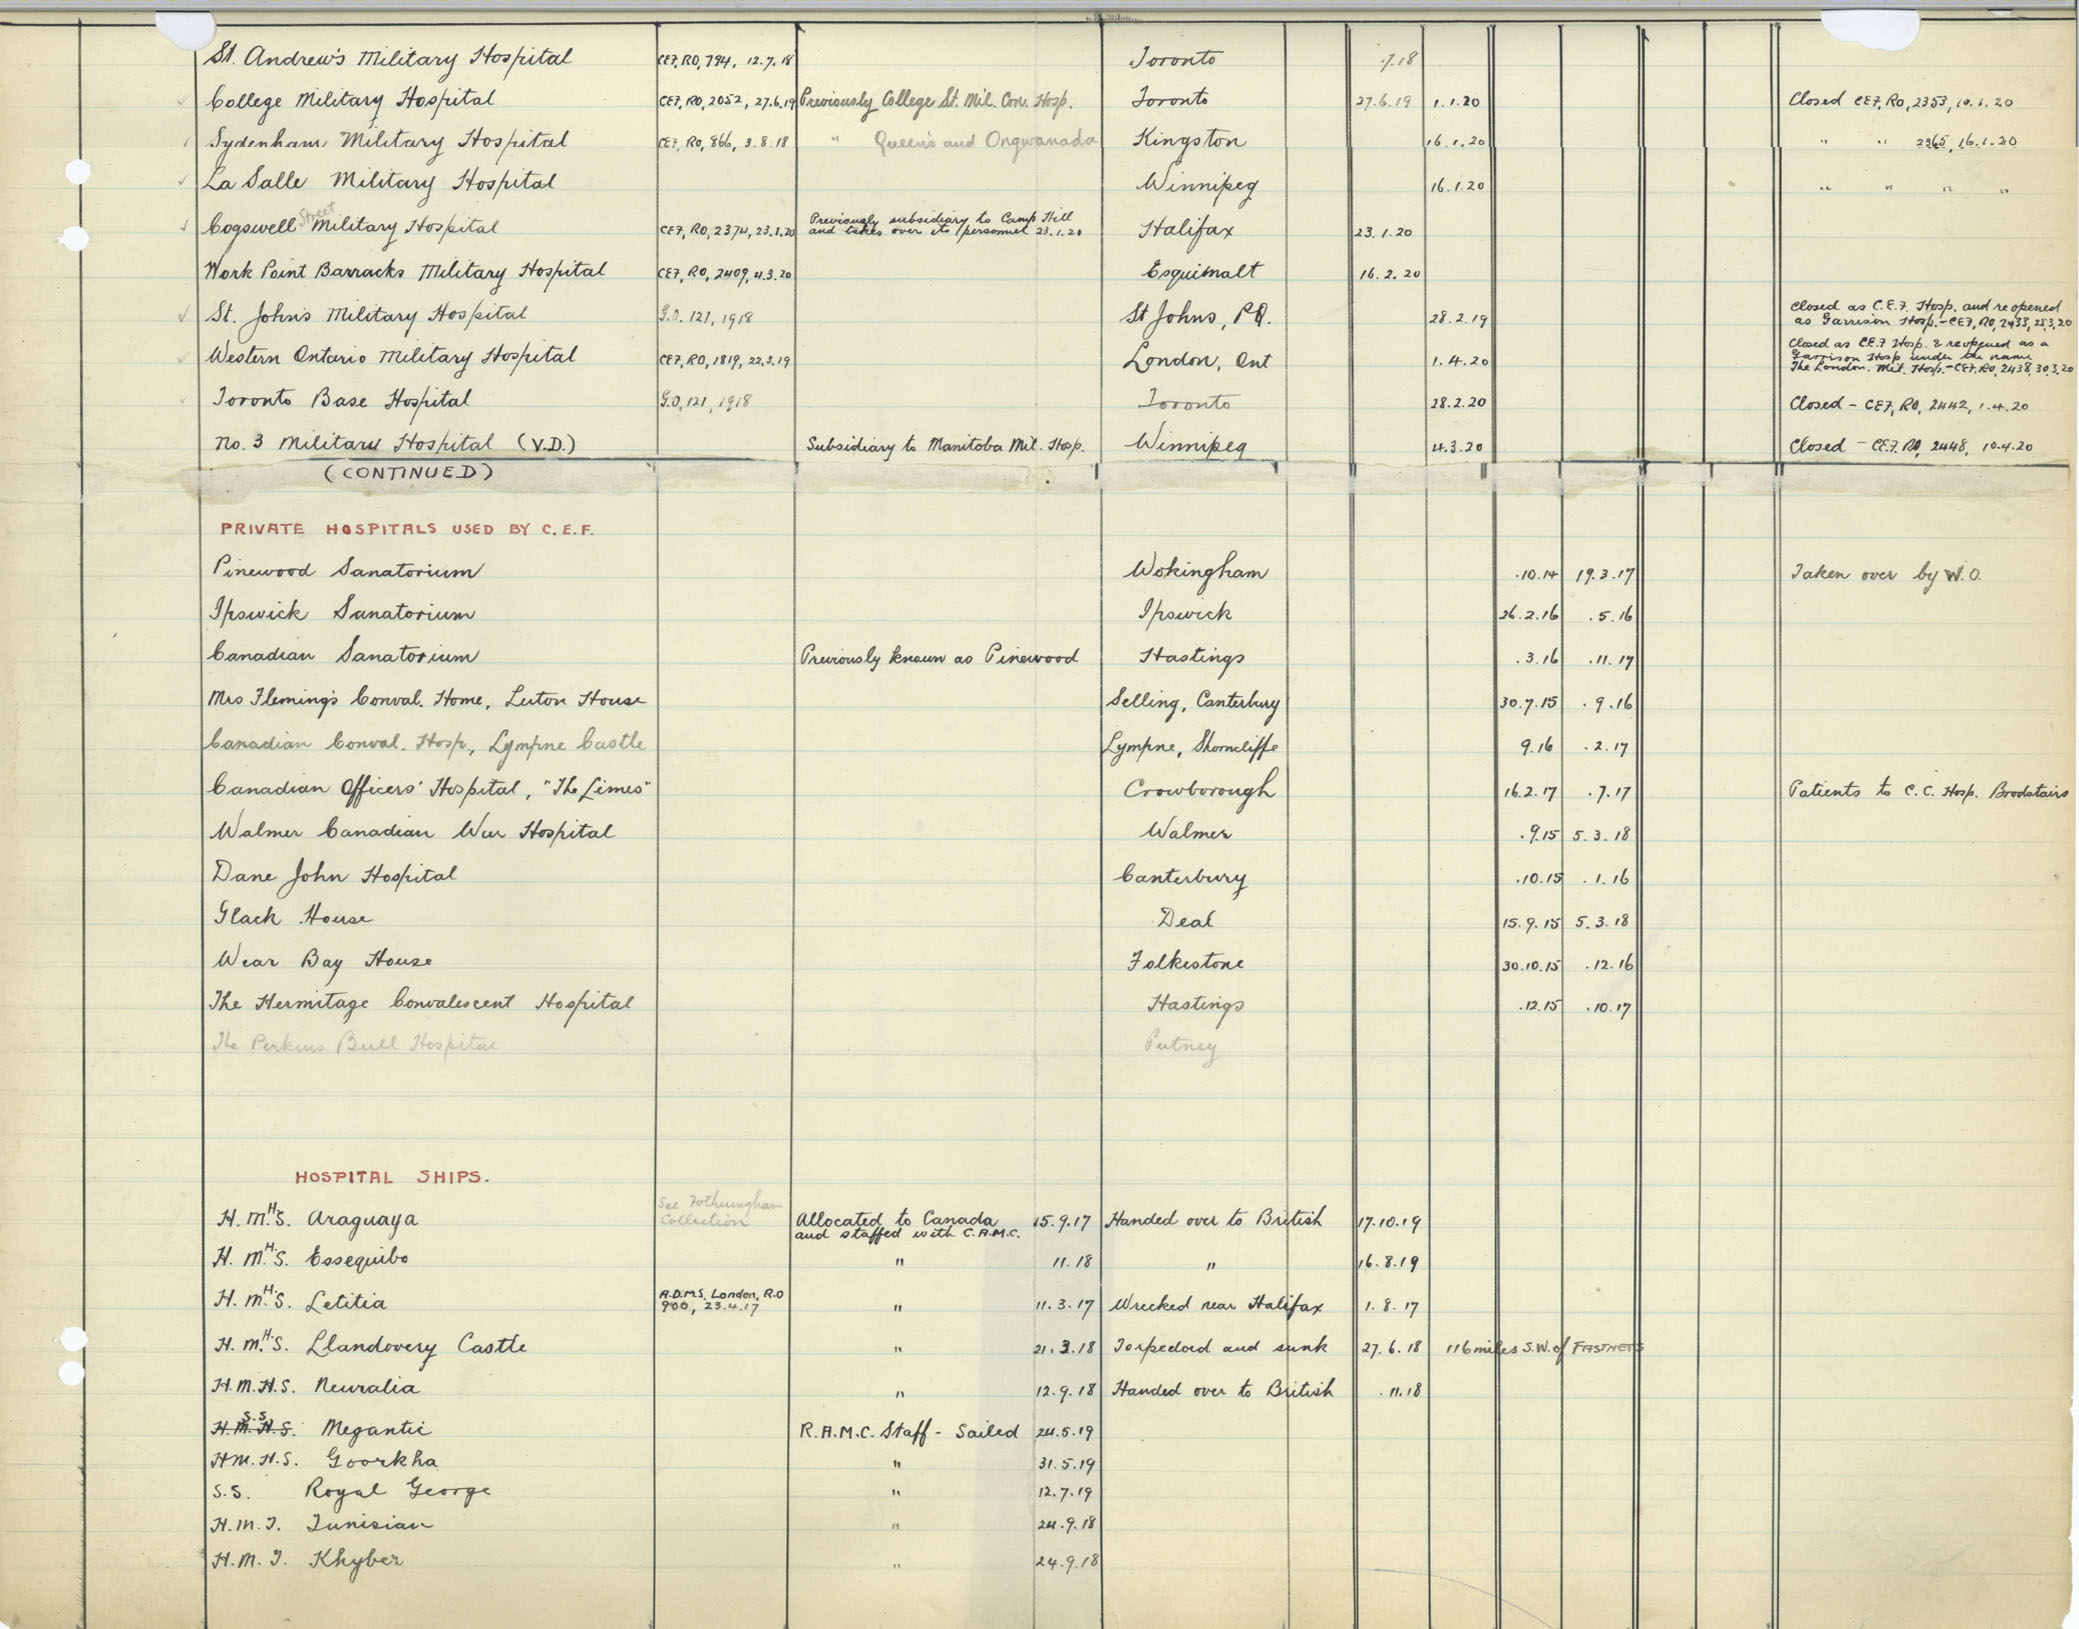 St. Andrew's Military Hospital CEF, RO, 794, 12.7.18 Toronto .7.18
College Military Hospital CEF, RO, 2052, 27.6.19 Previously College St. Mil. Con. Hosp. Toronto 27.6.19 1.1.20 Closed CEF, RO, 2353, 10.1.20
Sydenham Military Hospital CEF, RO, 866, 3.8.18 " Queen's and Ongwanada Kingston 16.1.20 " " 2365, 16.1.20
La Salle Military Hospital Winnipeg 16.1.20 " " " "
Cogswell Street Military Hospital CEF, RO, 2374, 23.1.20 Previously subsidiary to Camp Hill and takes over its personnel 23.1.20 Halifax 23.1.20
Work Point Barracks Military Hospital CEF, RO, 2409, 4.3.20 Esquimalt 16.2.20
St. John's Military Hospital G.O. 121, 1918 St Johns, P.Q. 28.2.19 Closed as C.E.F. Hosp. and reopened
as Garrison Hosp. - CEF, RO, 2433, 25.3.20
Western Ontario Military Hospital CEF, RO, 1819, 22.3.19 London, Ont 1.4.20 Closed as C.E.F Hosp. & reopened as a
Garrison Hosp under the name
The London. Mil. Hosp. - CEF, RO, 2438, 30.3.20
Toronto Base Hospital G.O, 121, 1918 Toronto 28.2.20 Closed - CEF, RO, 2442, 1.4.20
No. 3 Military Hospital (V.D.) Subsidiary to Manitoba Mil. Hosp. Winnipeg 4.3.20 Closed - CEF. RO, 2448, 10.4.20
(CONTINUED)
PRIVATE HOSPITALS USED BY C.E.F.
Pinewood Sanatorium Wokingham .10.14 19.3.17 Taken over by W.O.
Ipswick Sanatorium Ipswick 26.2.16 .5.16
Canadian Sanatorium Previously known as Pinewood Hastings .3.16 .11.17
Mrs Fleming's Conval. Home, Luton House Selling, Canterbury 30.7.15 .9.16
Canadian Conval. Hosp, Lympne Castle Lympne, Shorncliffe 9.16 .2.17
Canadian Officers' Hospital, "The Limes" Crowborough 16.2.17 .7.17 Patients to C.C. Hosp. Brodstairs
Walmer Canadian War Hospital Walmer .9.15 5.3.18
Dane John Hospital Canterbury .10.15 .1.16
Glack House Deal 15.9.15 5.3.18
Wear Bay House Folkestone 30.10.15 .12.16
The Hermitage Convalescent Hospital Hastings .12.15 .10.17
The Perkins Bull Hospital Putney
HOSPITAL SHIPS.
H.M.H.S. Araguaya See Fotheringham Collection Allocated to Canada and staffed with C.A.M.C. 15.9.17 Handed over to British 17.10.19
H.M.H.S. Essequibo " 11.18 " 16.8.19
H.M.H.S. Letitia A.D.M.S. London, R.O 900, 23.4.17 " 11.3.17 Wrecked near Halifax 1.8.17
H.M.H.S. Llandovery Castle " 21.3.18 Torpedoed and sunk 27.6.18 116 miles S.W. of FASTNETS
H.M.H.S. Neuralia " 12.9.18 Handed over to British .11.18
H.M.H.S. S.S. Megantic R.A.M.C. Staff - Sailed 24.5.19
H.M.H.S. Goorkha " 31.5.19
S.S. Royal George " 12.7.19
H.M.T. Tunisian " 24.9.18
H.M.T. Khyber " 24.9.18